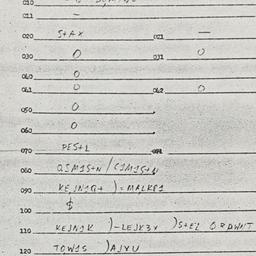 010
011 —
020 S+AX 021 —
030 0 031 0
040 0
041 0 042 0
050 0
060 0
070 PES+1
080 QIMIS+N / CIMIS+N
090 KEJNIG+ ) = MALKPI
100 $
110 KEJNIK ) - LEJK3X ) S+EL ORAWNT
120 TOWIS ) AJYU